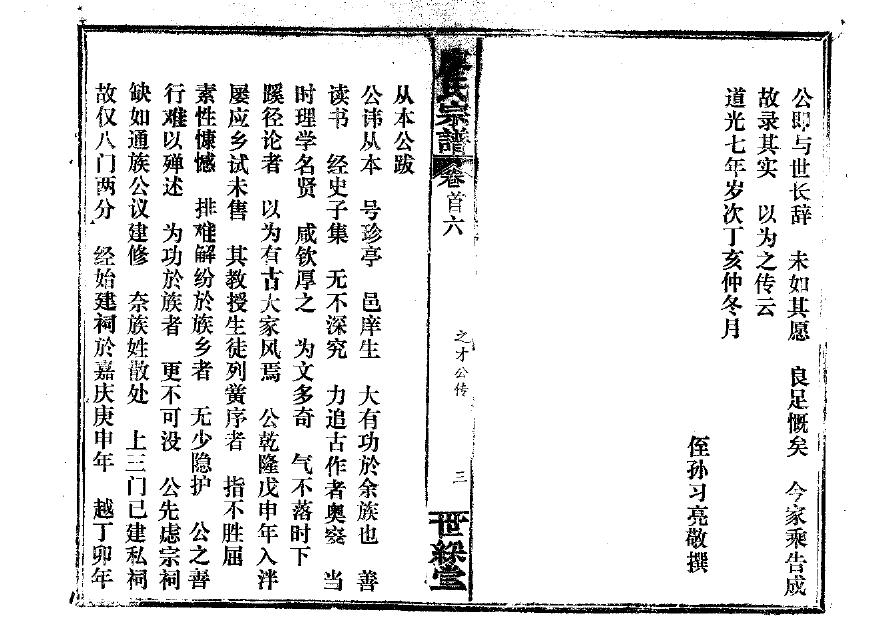 公即与世长辞 未如其愿 良足慨矣 今家乘告成
故录其实 以为之传云
道光七年岁次丁亥仲冬月
侄孙习亮敬撰
廖氏宗譜 卷首六 之才公传 三 世綵堂
从本公跋
公讳从本 号珍亭 邑庠生 大有功於余族也 善
读书 经史子集 无不深究 力追古作者奥窔 当
时理学名贤 咸钦厚之 为文多奇 气不落时下
蹊径论者 以为有古大家风焉 公乾隆戊申年入泮
屡应乡试未售 其教授生徒列黉序者 指不胜屈
素性慷憾 排难解纷於族乡者 无少隐护 公之善
行难以殚述 为功於族者 更不可没 公先虑宗祠
缺如通族公议建修 奈族姓散处 上三门已建私祠
故仅八门两分 经始建祠於嘉庆庚申年 越丁卯年